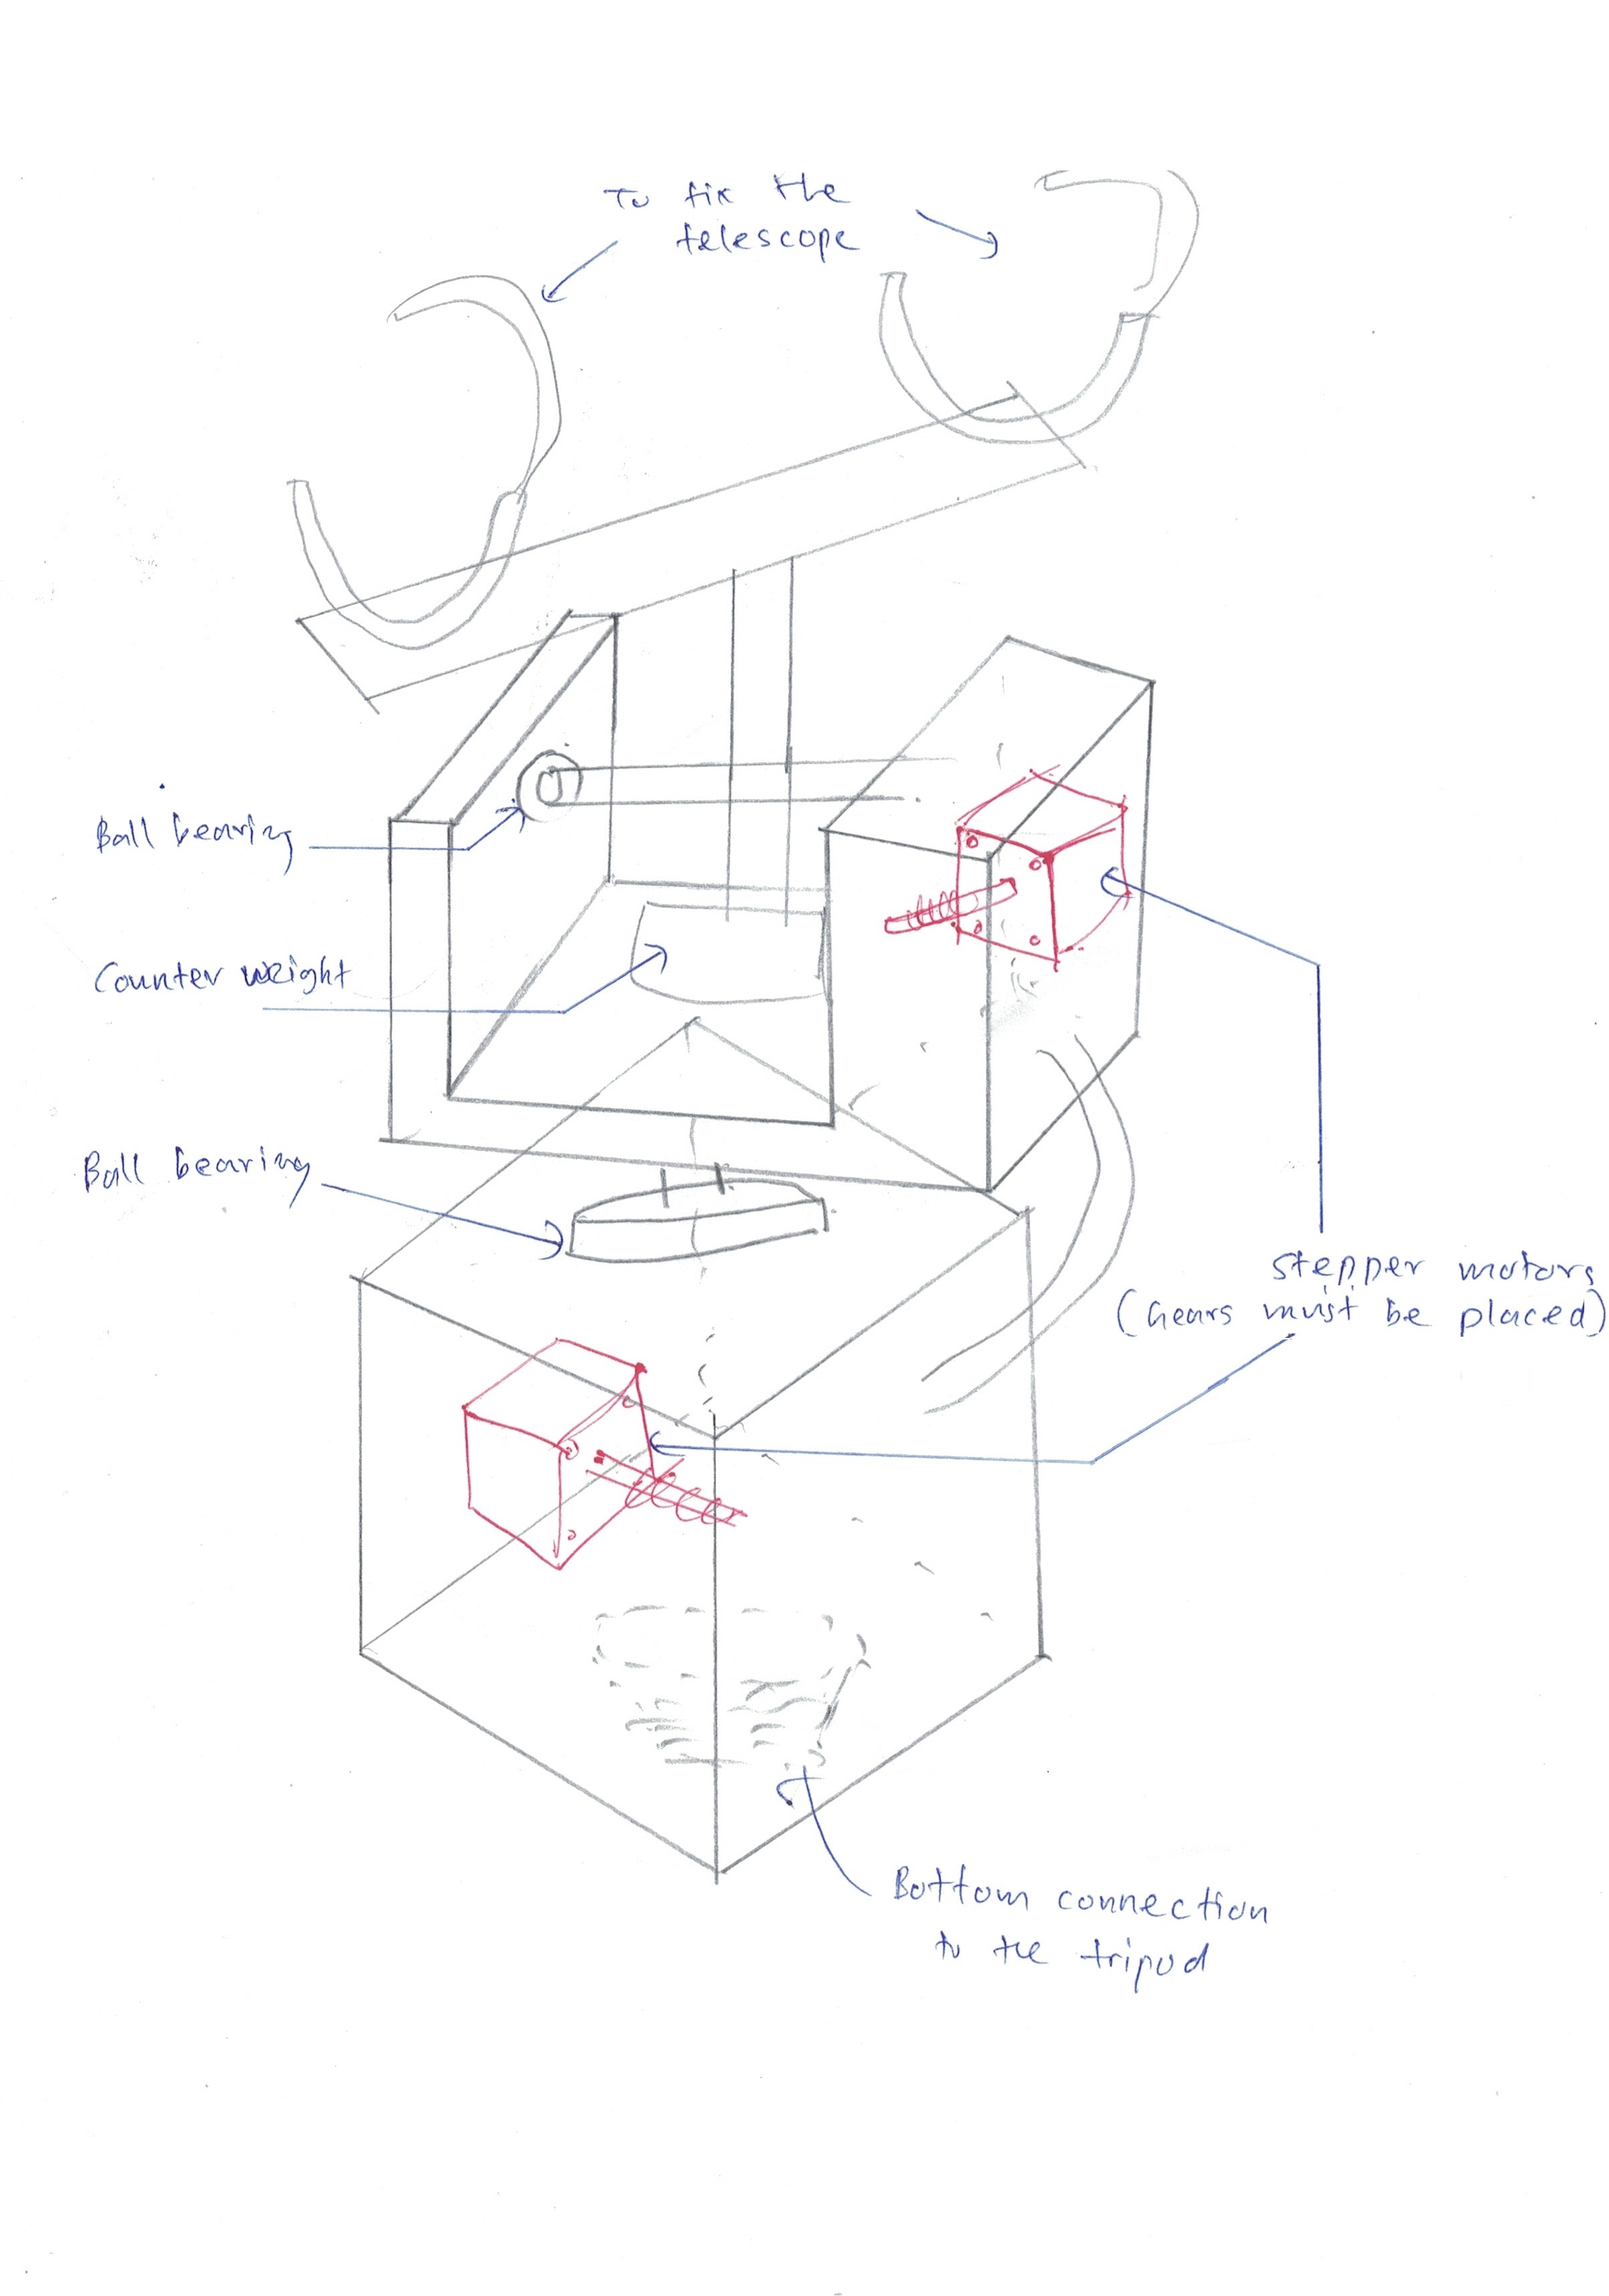 To fix the
telescope
Ball bearing
Counter weight
Ball bearing
Stepper motors
(Gears must be placed)
Bottom connection
to the tripod